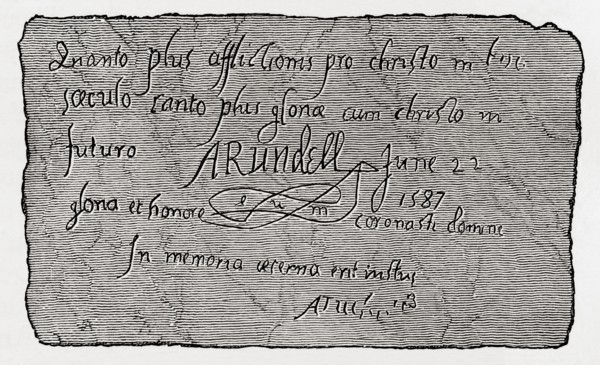 Quanto plus afflictionis pro christo in
sæculo tanto plus gloriæ cum christo in
futuro ARundell June 22
1587
gloria et honore e u m coronasti domine
In memoria æterna erit iustus